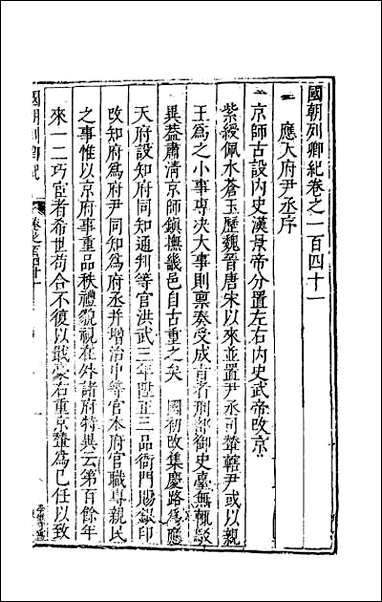 國朝列卿紀卷之一百四十一
應天府尹丞序
京師古設內史漢景帝分置左右內史武帝改京
紫綬佩水蒼玉歷魏晉唐宋以來並置尹丞司輦轄尹或以親
王爲之小事專決大事則禀奏受成旨者刑部御史臺無輒駁
異葢肅清京師鎮撫畿邑自古重之矣 國初改集慶路爲應
天府設知府同知通判等官洪武三年陞正三品衙門賜銀印
改知府爲府尹同知爲府丞并增治中等官本府官職專親民
之事惟以京府事重品秩禮貌視在外諸府特異云第百餘年
來一二巧宦者希世苟合不復以戢豪右重京輦爲己任以致